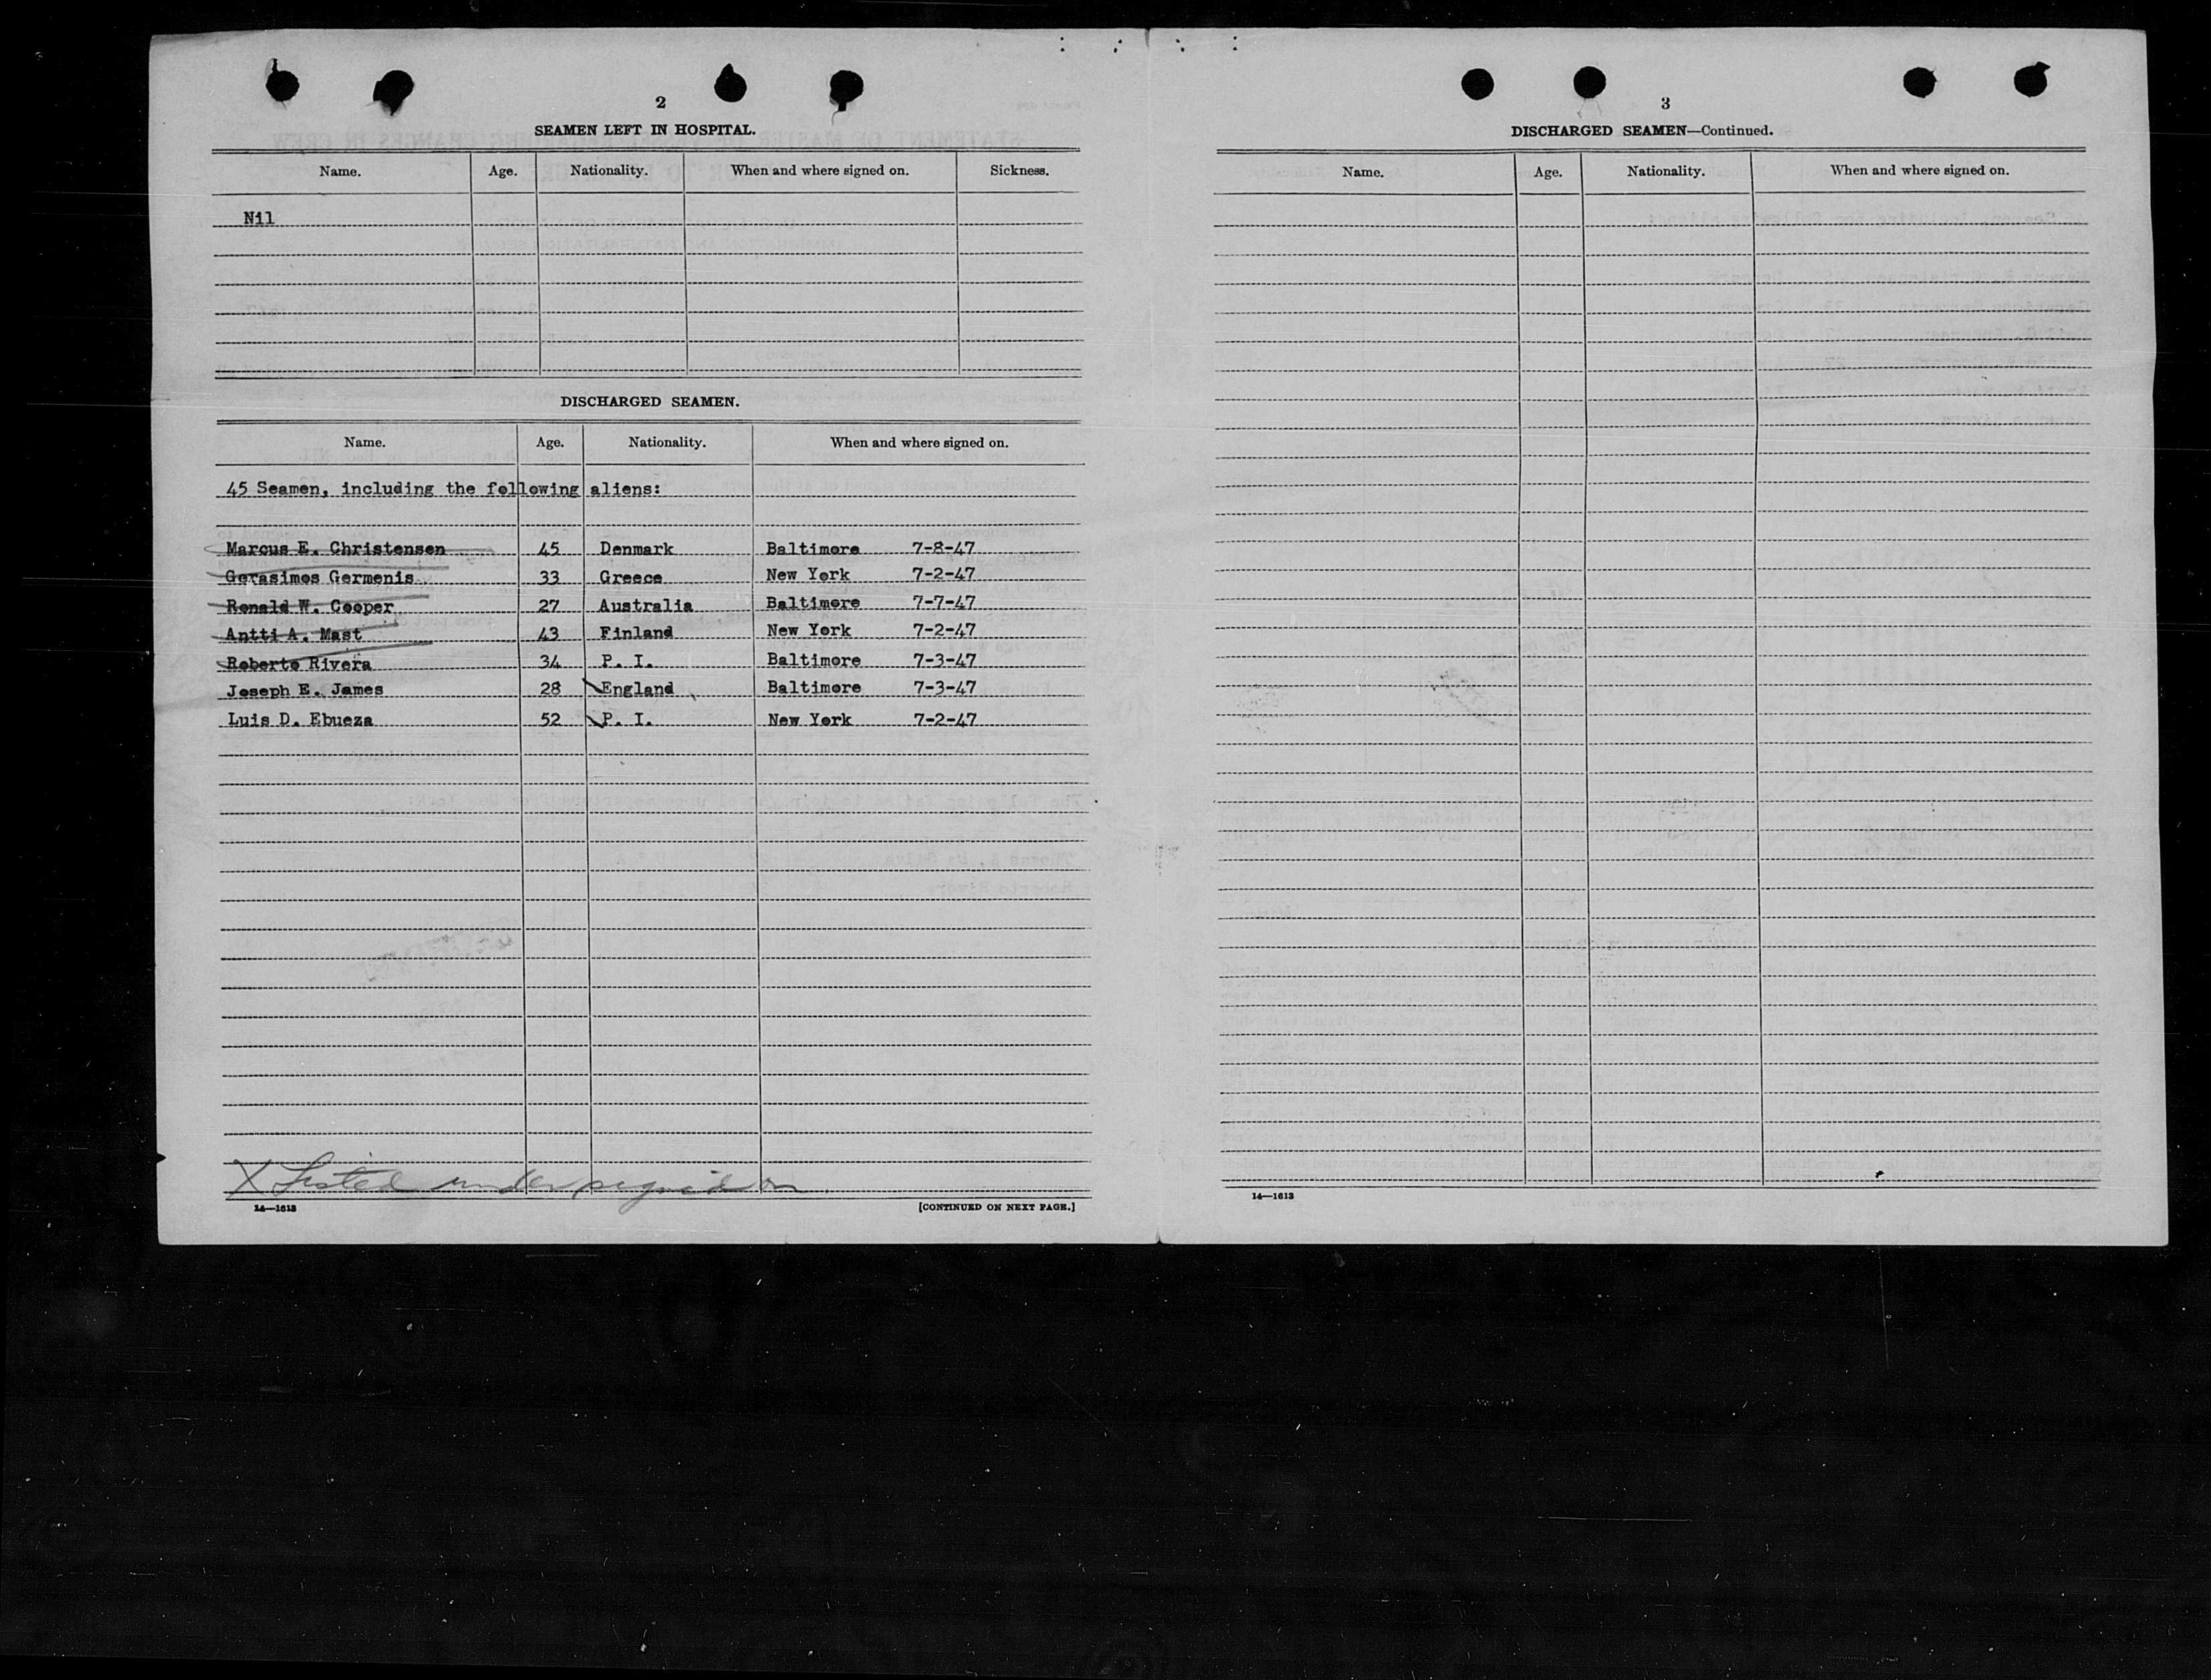 2
SEAMEN LEFT IN HOSPITAL.
Name. Age. Nationality. When and where signed on. Sickness.
Nil
DISCHARGED SEAMEN.
Name. Age. Nationality. When and where signed on.
45 Seamen, including the following aliens:
Marcus E. Christensen 45 Denmark Baltimore 7-8-47
Gerasimos Germenis 33 Greece New York 7-2-47
Ronald W. Cooper 27 Australia Baltimore 7-7-47
Antti A. Mast 43 Finland New York 7-2-47
Roberto Rivera 34 P. I. Baltimore 7-3-47
Joseph E. James 28 England Baltimore 7-3-47
Luis D. Ebueza 52 P. I. New York 7-2-47
X Listed under signed on.
14—1613 [CONTINUED ON NEXT PAGE.]
3
DISCHARGED SEAMEN—Continued.
Name. Age. Nationality. When and where signed on.
14—1613